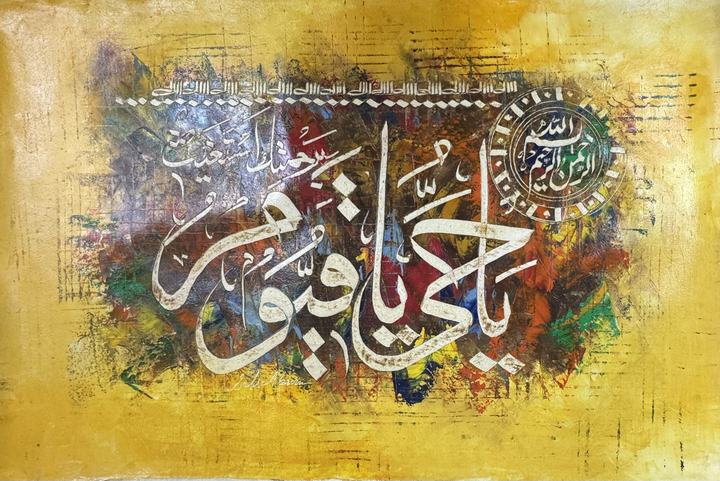 بسم الله
الرحمن الرحيم
يَا حَيُّ يَا قَيُّومُ
بِرَحْمَتِكَ أَسْتَغِيثُ